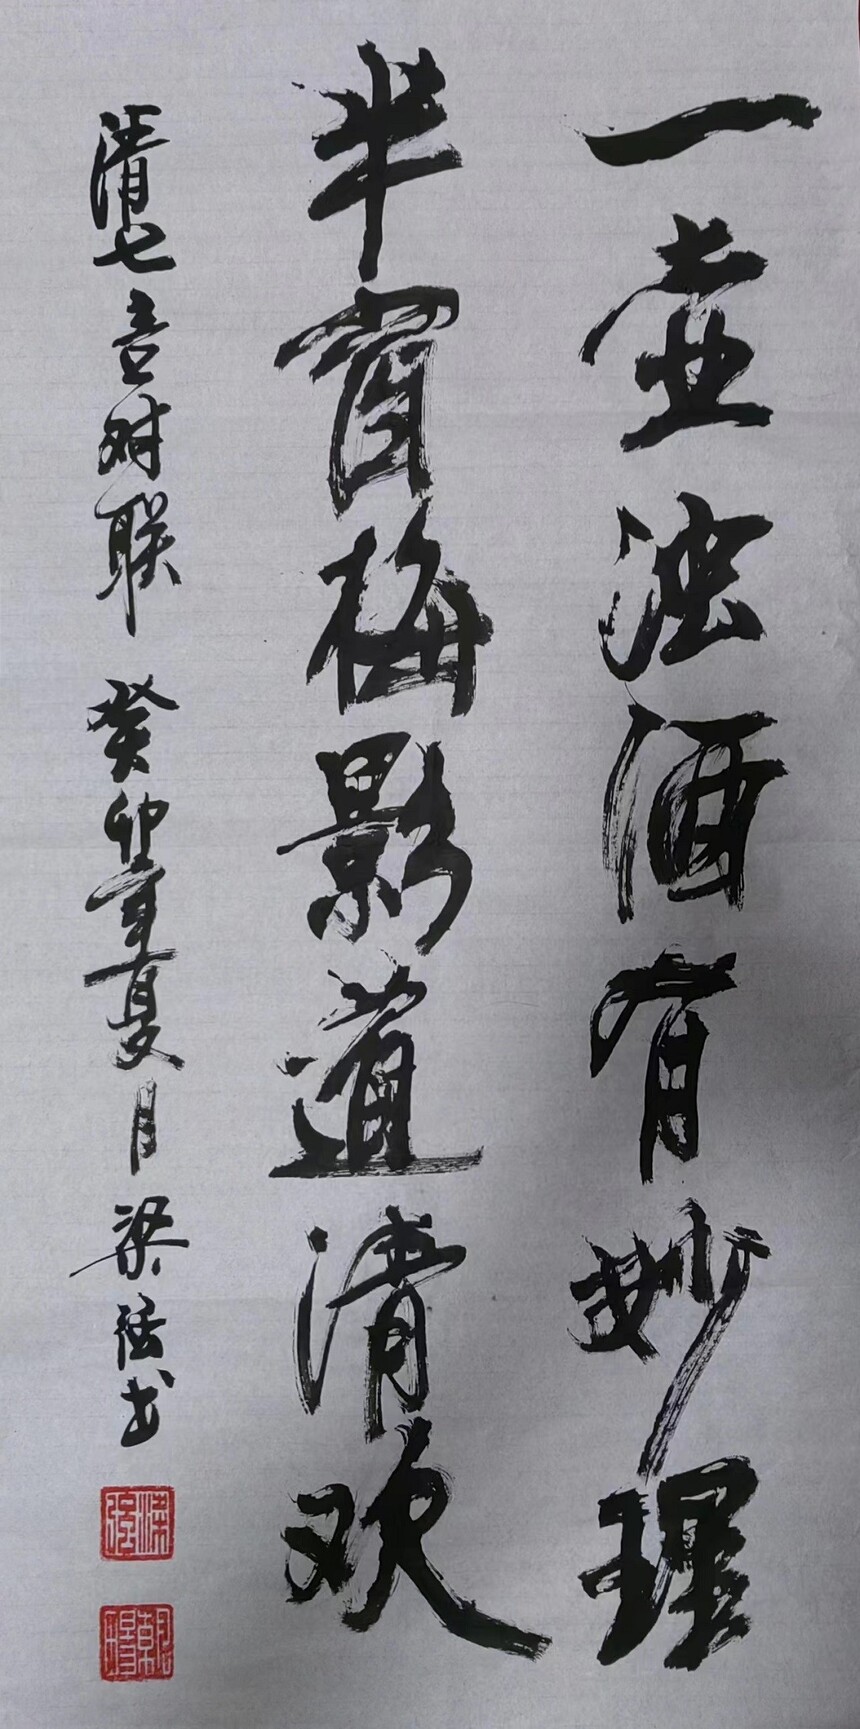 一壶浊酒有妙理
半窗梅影道清欢
清七言对联 癸卯年夏月 梁 书